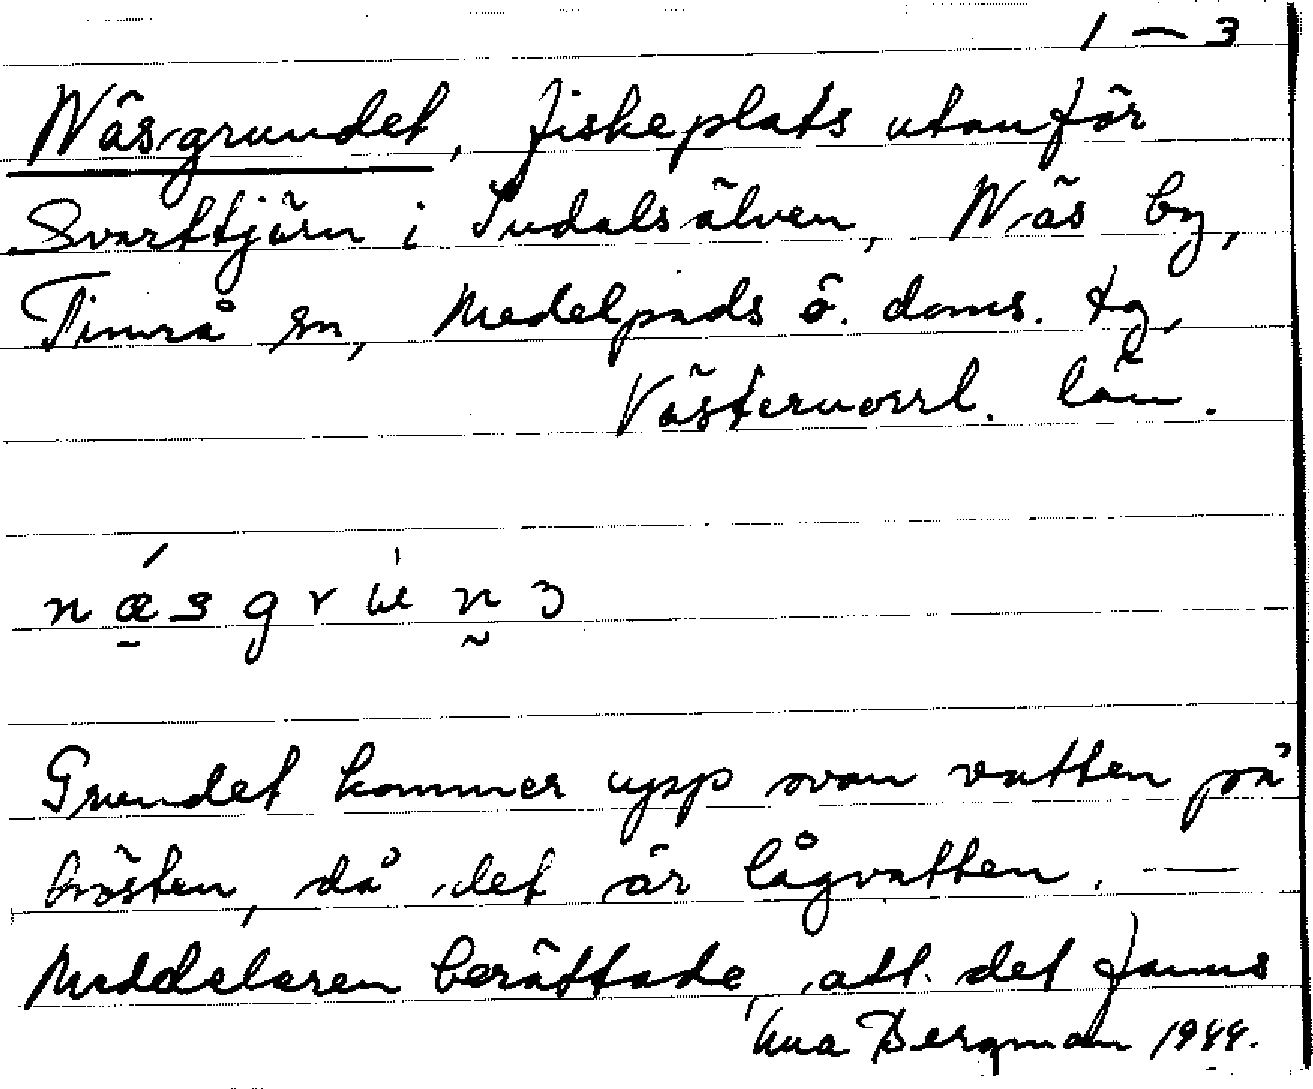 1 – 3
Näsgrundet, fiskeplats utanför
Svarttjärn i Indalsälven, Näs by,
Timrå sn, Medelpads ö. doms. tg,
Västernorrl. län.
næsgrʉn̰ɜ
Grundet kommer upp ovan vatten på
hösten, då det är lågvatten. —
Meddelaren berättade, att det fanns
Bergman 1944.